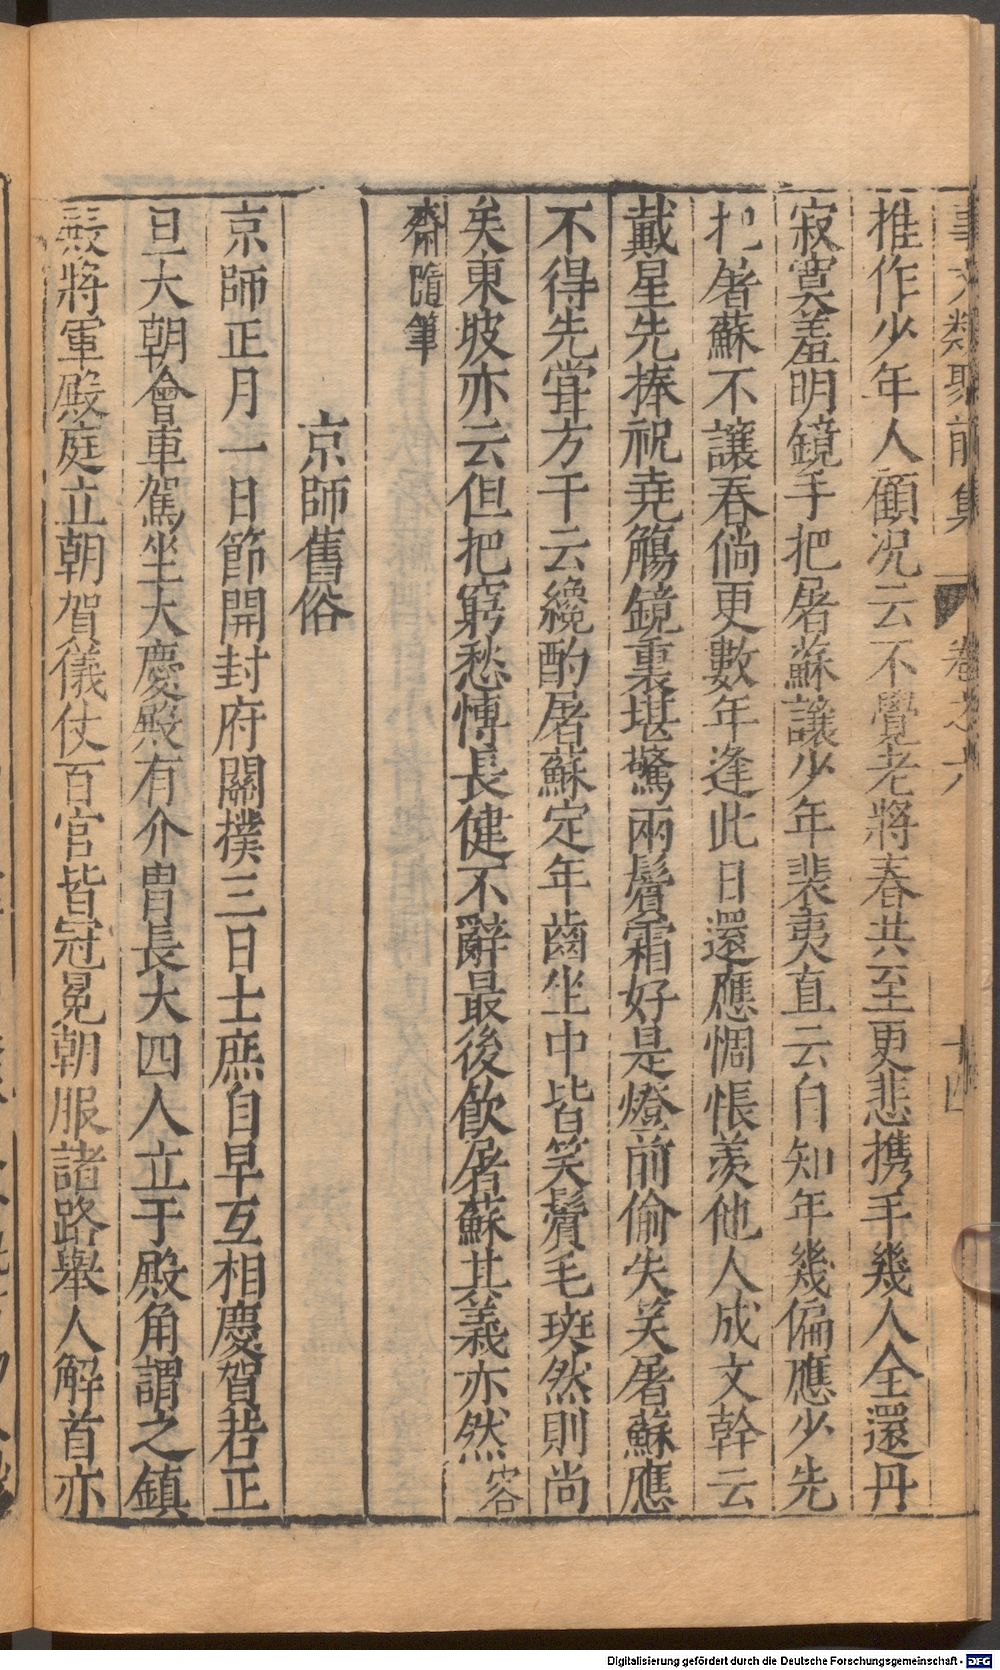 事文類聚前集 卷之六 十四
推作少年人顧况云不覺老將春共至更悲携手幾人全還丹
寂寞羞明鏡手把屠蘇讓少年裴夷直云自知年幾偏應少先
把屠蘇不讓春倘更數年逢此日還應惆悵羨他人成文幹云
戴星先捧祝堯觴鏡裏堪驚兩鬢霜好是燈前偷失笑屠蘇應
不得先甞方干云纔酌屠蘇定年齒坐中皆笑鬢毛斑然則尚
矣東坡亦云但把窮愁愽長健不辭最後飲屠蘇其義亦然容
齋隨筆
京師舊俗
京師正月一日節開封府關撲三日士庶自早互相慶賀若正
旦大朝會車駕坐大慶殿有介胄長大四人立于殿角謂之鎮
殿將軍殿庭立朝賀儀仗百官皆冠冕朝服諸路舉人解首亦
Digitalisierung gefördert durch die Deutsche Forschungsgemeinschaft - DFG